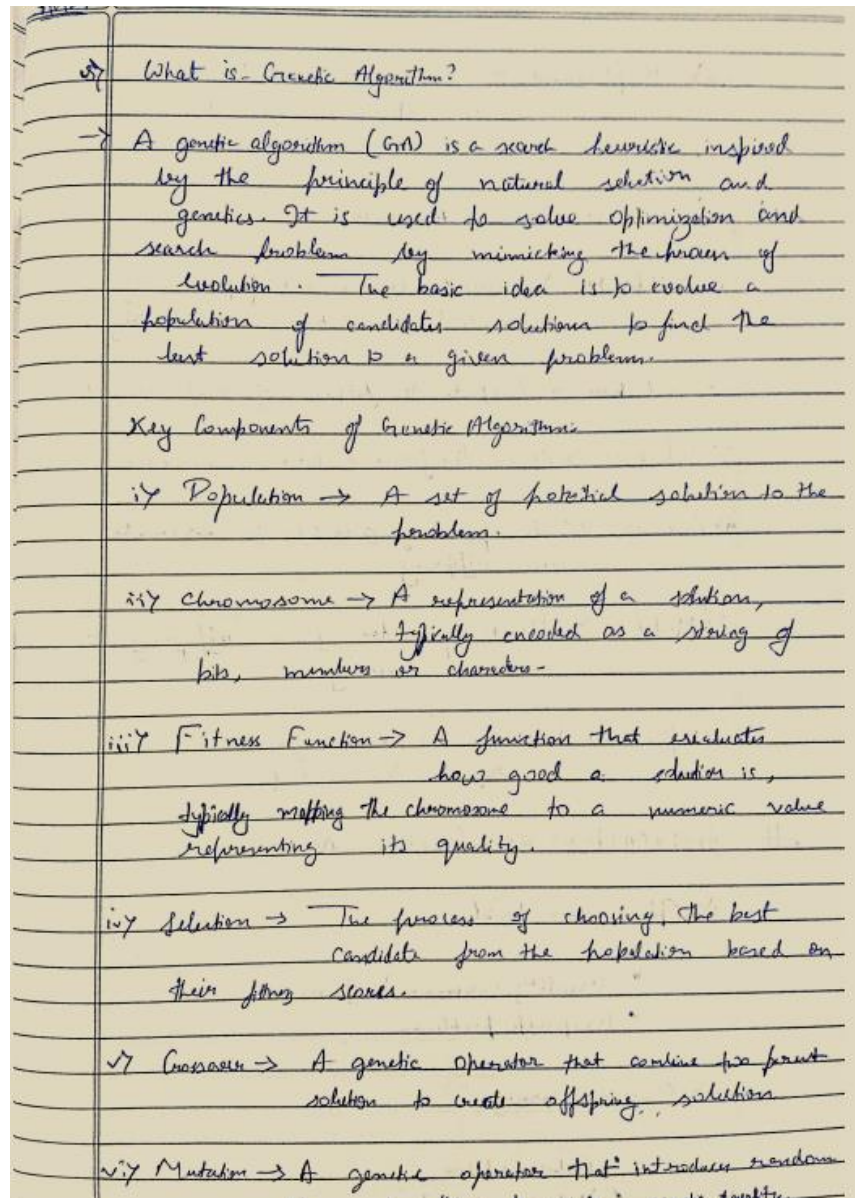 5) What is Genetic Algorithm?
→ A genetic algorithm (GA) is a search heuristic inspired
by the principle of natural selection and
genetics. It is used to solve optimization and
search problem by mimicking the process of
evolution. The basic idea is to evolve a
population of candidates solutions to find the
best solution to a given problem.
Key Components of Genetic Algorithm:
i) Population → A set of potential solution to the
problem.
ii) Chromosome → A representation of a solution,
typically encoded as a string of
bits, numbers or characters-
iii) Fitness Function → A function that evaluates
how good a solution is,
typically mapping the chromosome to a numeric value
representing its quality.
iv) Selection → The process of choosing, the best
candidate from the population based on
their fitness scores.
v) Crossover → A genetic operator that combine two parent
solution to create offspring solution
vi) Mutation → A genetic operator that introduces random